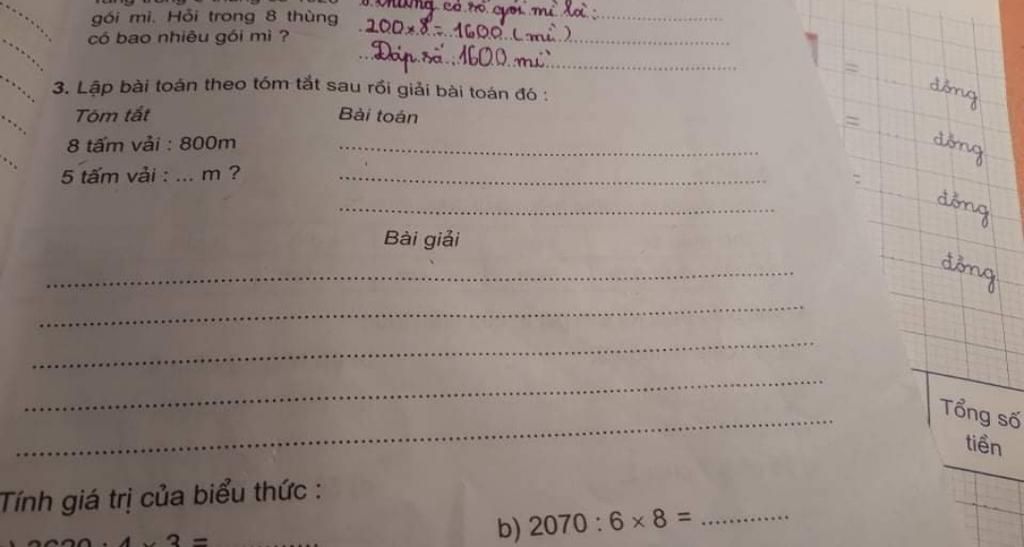 gói mì. Hỏi trong 8 thùng
có bao nhiêu gói mì ?
8 thùng có số gói mì là :
200 x 8 = 1600 ( mì )
Đáp số : 1600 mì
3. Lập bài toán theo tóm tắt sau rồi giải bài toán đó :
Tóm tắt
Bài toán
8 tấm vải : 800m
5 tấm vải : ... m ?
Bài giải
Tính giá trị của biểu thức :
b) 2070 : 6 × 8 = .............
= đồng
= đồng
= đồng
đồng
Tổng số
tiền